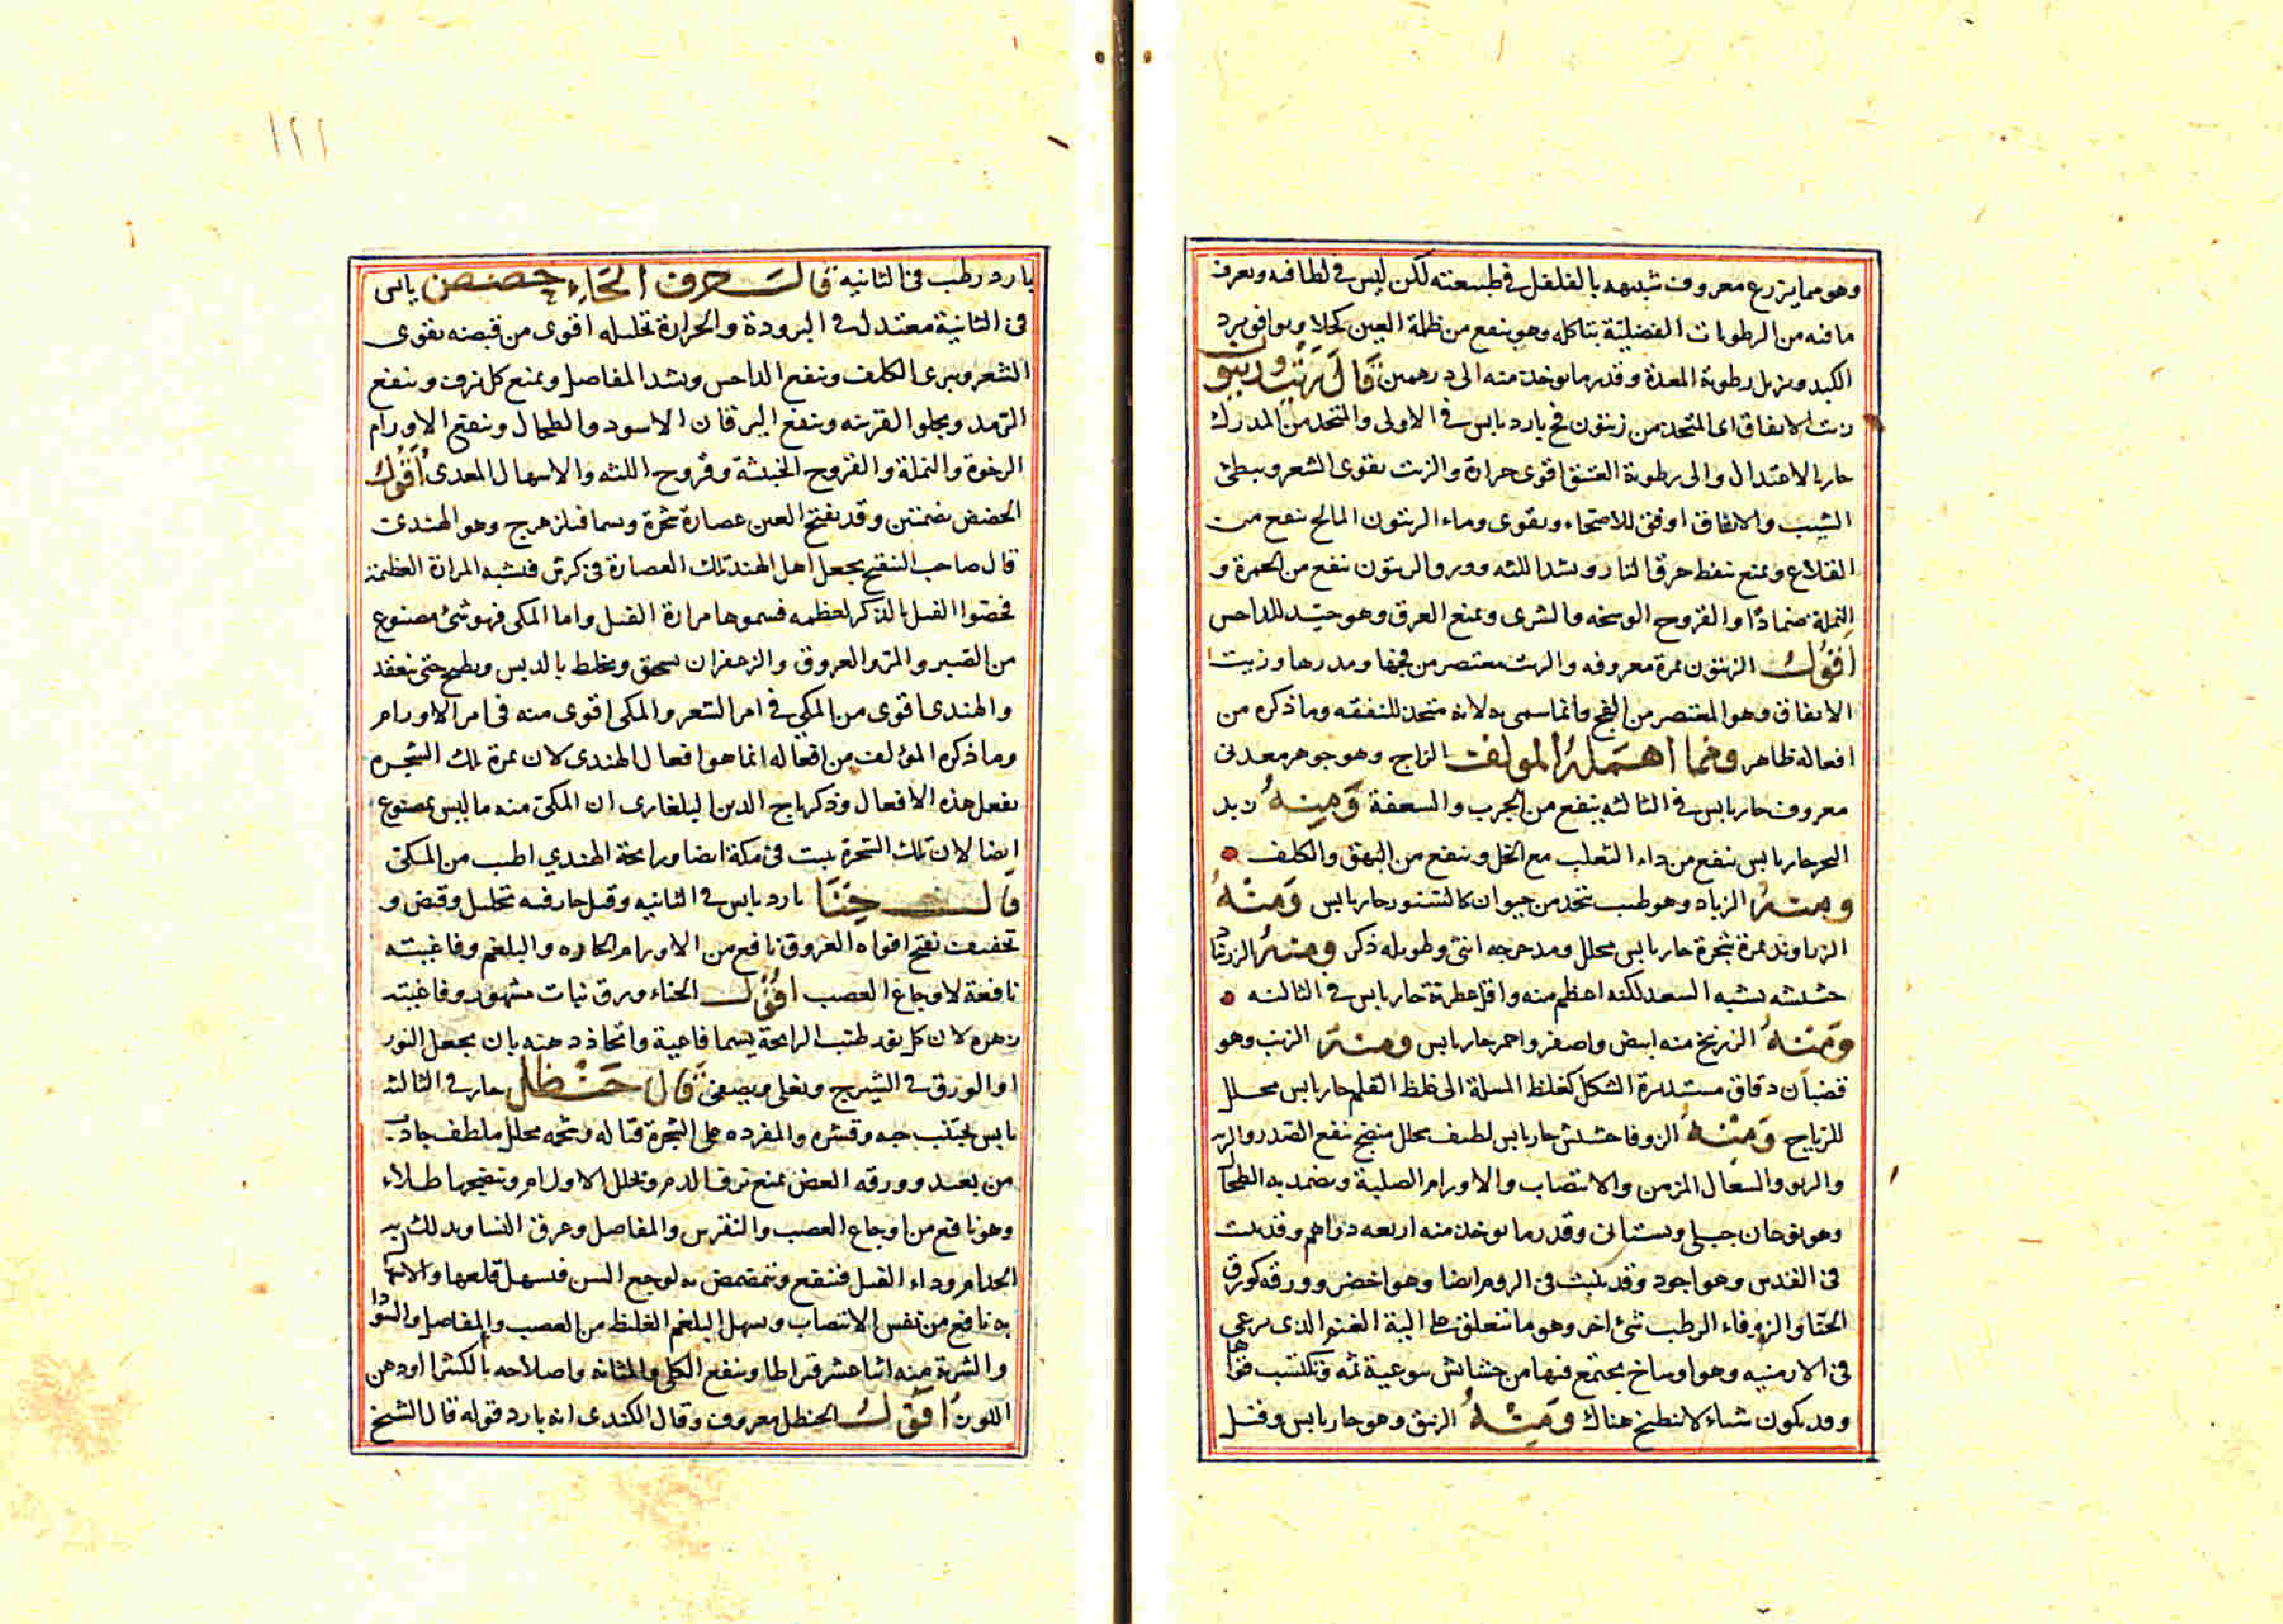 وهو مما يزرع معروف شبيهه بالفلفل في طبيعته لكن ليس في لطافته ويعرف
ما فيه من الرطوبات الفضلية بتاكله وهو ينفع من ظلمة العين كحلا ويوافق برد
الكبد ويزيل رطوبة المعدة وقدر ما يوخذ منه الى درهمين قال زيت وزيتون
زيت الانفاق اى المتخذ من زيتون فج بارد يابس في الاولى والمتخذ من المدرك
حار بالاعتدال والى رطوبة العتيق اقوى حرارة والزيت يقوى الشعر ويبطئ
الشيب والانفاق اوفق للاصحاء ويقوى وماء الزيتون المالح ينفع من
القلاع ويمنع تنفط حرق النار ويشد اللثه وورق الزيتون ينفع من الحمرة و
النملة ضمادًا والقروح الوسخه والشرى ويمنع العرق وهو جيّد للداحس
اقول الزيتون ثمرة معروفه والزيت معتصر من فجها ومدركها وزيت
الانفاق وهو المعتصر من الفج وانما سمى به لانه متخذ للنفقه وما ذكره من
افعاله ظاهر ومما اهمله المولف الزاج وهو جوهر معدنى
معروف حار يابس في الثالثه ينفع من الجرب والسعفة ومنه زبد
البحر حار يابس ينفع من داء الثعلب مع الخل وينفع من البهق والكلف
ومنه الزباد وهو طيب يتخذ من حيوان كالسنور حار يابس ومنه
الزراوند ثمرة شجرة حار يابس محلل ومدحرجه انثى وطويله ذكر ومنه الزرنباد
حشيشه يشبه السعد لكنه اعظم منه واقل عطرية حار يابس في الثالثه
ومنه الزرنيخ منه ابيض واصفر واحمر حار يابس ومنه الزرنب وهو
قضبان دقاق مستديرة الشكل كغلظ المسلة الى غلظ القلم حار يابس محلل
للرياح ومنه الزوفا حشيش حار يابس لطيف محلل منضج ينفع الصدر والريه
والربو والسعال المزمن والانتصاب والاورام الصلبة ويضمد به الطحال
وهو نوعان جبلى وبستانى وقدر ما يوخذ منه اربعه دراهم وقد ينبت
في القدس وهو اجود وقد ينبت في الروم ايضا وهو اخضر وورقه كورق
الحنا والزوفاء الرطب شئ اخر وهو ما يتعلق على الية الغنم الذى يرعى
في الارمنيه وهو اوساخ يجتمع فيها من حشائش يتوعية ثمه وتكتسب قواها
وقد يكون سيالا فيطبخ هناك ومنه الزيبق وهو حار يابس وقيل
بارد رطب في الثانيه قال حرف الحاء حضض يابس
في الثانية معتدل في البرودة والحرارة تحليله اقوى من قبضه يقوى
الشعر ويبرى الكلف وينفع الداحس ويشد المفاصل ويمنع كل نزف وينفع
الرمد ويجلو القرنيه وينفع اليرقان الاسود والطحال وينفع الاورام
الرخوة والنملة والقروح الخبيثة وقروح اللثه والاسهال المعدى اقول
الحضض بضمتين وقد يفتح العين عصارة شجرة ويسما فيلزهرج وهو الهندى
قال صاحب التنقيح يجعل اهل الهند تلك العصارة في كرش فيشبه المرارة العظيمة
فخصّوا الفيل بالذكر لعظمه فسموها مرارة الفيل واما المكى فهو شئ مصنوع
من الصبر والمرّ والعروق والزعفران يسحق ويخلط بالدبس ويطبخ حتى ينعقد
والهندى اقوى من المكى في امر الشعر والمكى اقوى منه في امر الاورام
وما ذكره المؤلف من افعاله انما هو افعال الهندى لان ثمرة تلك الشجره
يفعل هذه الافعال وذكر تاج الدين البلغارى ان المكى منه ما ليس بمصنوع
ايضا لان تلك الشجرة ينبت في مكة ايضا ورايحة الهندي اطيب من المكى
قال حنا بارد يابس في الثانيه وقيل حار فيه تحليل وقبض و
تجفيف يفتح افواه العروق نافع من الاورام الحاره والبلغم وفاغيته
نافعة لاوجاع العصب اقول الحناء ورق نبات مشهور وفاغيته
زهره لان كل نور طيب الرايحة يسما فاغية واتخاذ دهنه بان يجعل النور
او الورق في الشيرج ويغلى ويصفى قال حنظل حار في الثالثه
يابس يجتنب حبه وقشره والمفرده على الشجرة قتاله وشحمه محلل ملطف جاذب
من بعيد وورقه الغض يمنع نزف الدم ويحلل الاورام وينضجها طلاء
وهو نافع من اوجاع العصب والنقرس والمفاصل وعرق النسا ويدلك به
الجذام وداء الفيل فينفع ويتمضمض به لوجع السن فيسهل قلعها والاسهال
به نافع من نفس الانتصاب ويسهل البلغم الغليظ من العصب والمفاصل والسودا
والشربة منه اثنا عشر قيراطا وينفع الكلى والمثانه واصلاحه بالكثيرا او دهن
اللوز اقول الحنظل معروف وقال الكندى انه بارد قوله قال الشيخ